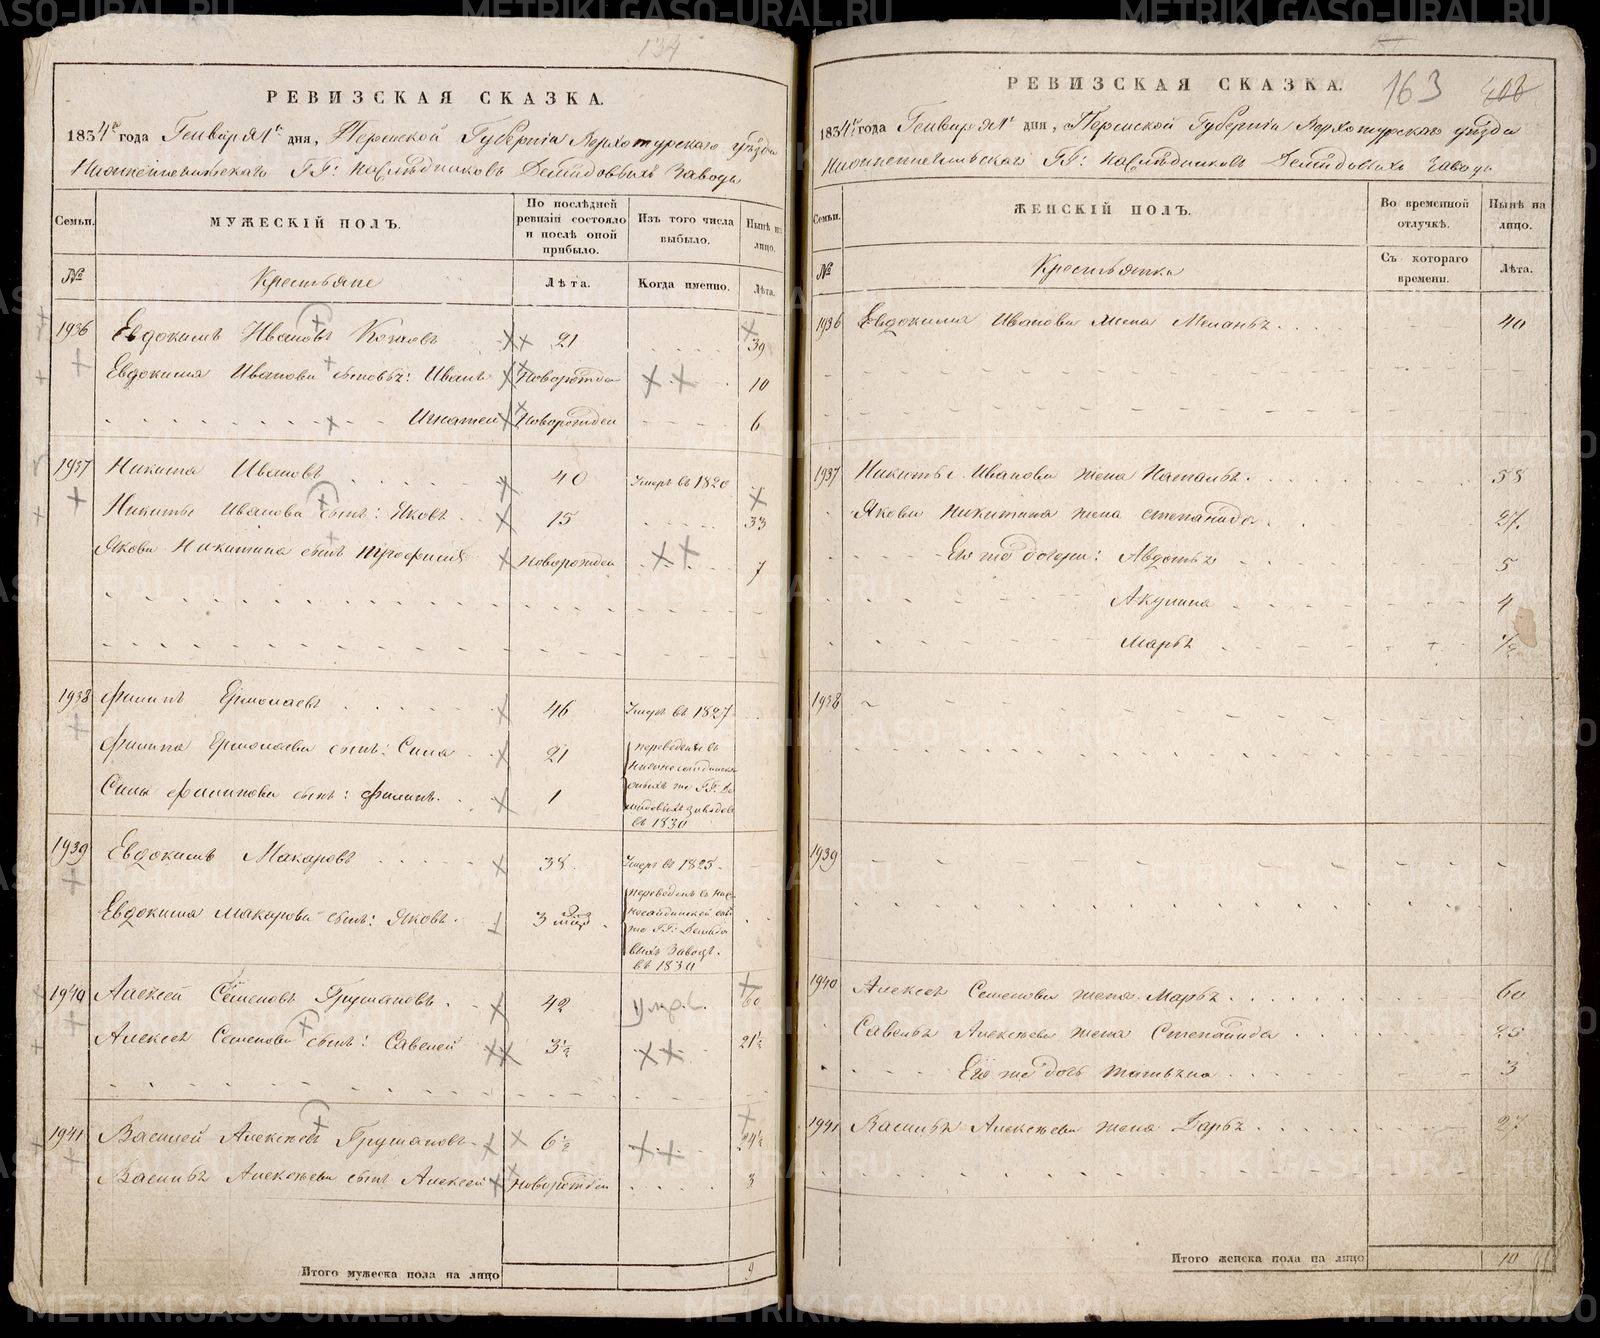 134
РЕВИЗСКАЯ СКАЗКА.
1834 года Генваря 1 дня, Пермской Губернiи Верхотурскаго уѣзда
ГГ: Наслѣдниковъ Демидовыхъ Завода
Семьи.
МУЖЕСКIЙ ПОЛЪ.
По послѣдней ревизiи состояло и послѣ оной прибыло.
Изъ того числа выбыло.
Нынѣ на лицо.
№
Крестьяне
Лѣта.
Когда именно.
Лѣта.
1936 Евдокимъ Ивановъ 21 39
Евдокима Иванова сыновья: Иванъ Новорожден 10
Игнатей Новорожден 6
1937 Никита Ивановъ 40 Умеръ въ 1820
Никиты Иванова сынъ: Яковъ 15 33
Якова Никитина сынъ Трофимъ Новорожден 7
1938 Филипъ Ермолаевъ 46 Умеръ въ 1827
Филипа Ермолаева сынъ: Сила 21 переведены въ
Силы Филипова сынъ: Филипъ. 1
же ГГ: Демидовыхъ заводъ
въ 1830
1939 Евдокимъ Макаровъ 38 Умеръ въ 1825
Евдокима Макарова сынъ: Яковъ. 3 мѣс переведенъ въ
же ГГ: Демидовыхъ Заводъ.
въ 1830
1940 Алексей Семеновъ Грушановъ. 42 умр. 60
Алексея Семенова сынъ: Савелей 3½ 21½
1941 Василей Алексѣевъ Грушановъ 6½ 24½
Василья Алексѣева сынъ Алексей Новорожден 3
Итого мужеска пола на лицо 9
163
РЕВИЗСКАЯ СКАЗКА.
1834 года Генваря 1 дня, Пермской Губернiи Верхотурскаго уѣзда
ГГ: Наслѣдниковъ Демидовыхъ Завода
Семьи.
ЖЕНСКIЙ ПОЛЪ.
Во временной отлучкѣ.
Нынѣ на лицо.
№
Крестьянки
Съ котораго времени.
Лѣта.
1936 Евдокима Иванова жена Меланья 40
1937 Никиты Иванова жена Наталья. 58
Якова Никитина жена Степанида. 27
Его же дочери: Авдотья 5
Акулина 4
Марья ½
1938
1939
1940 Алексея Семенова жена Марья 60
Савелья Алексѣева жена Степанида 25
Его же дочь Татьяна 3
1941 Василья Алексѣева жена Дарья 27
Итого женска пола на лицо 10
METRIKI.GASO-URAL.RU